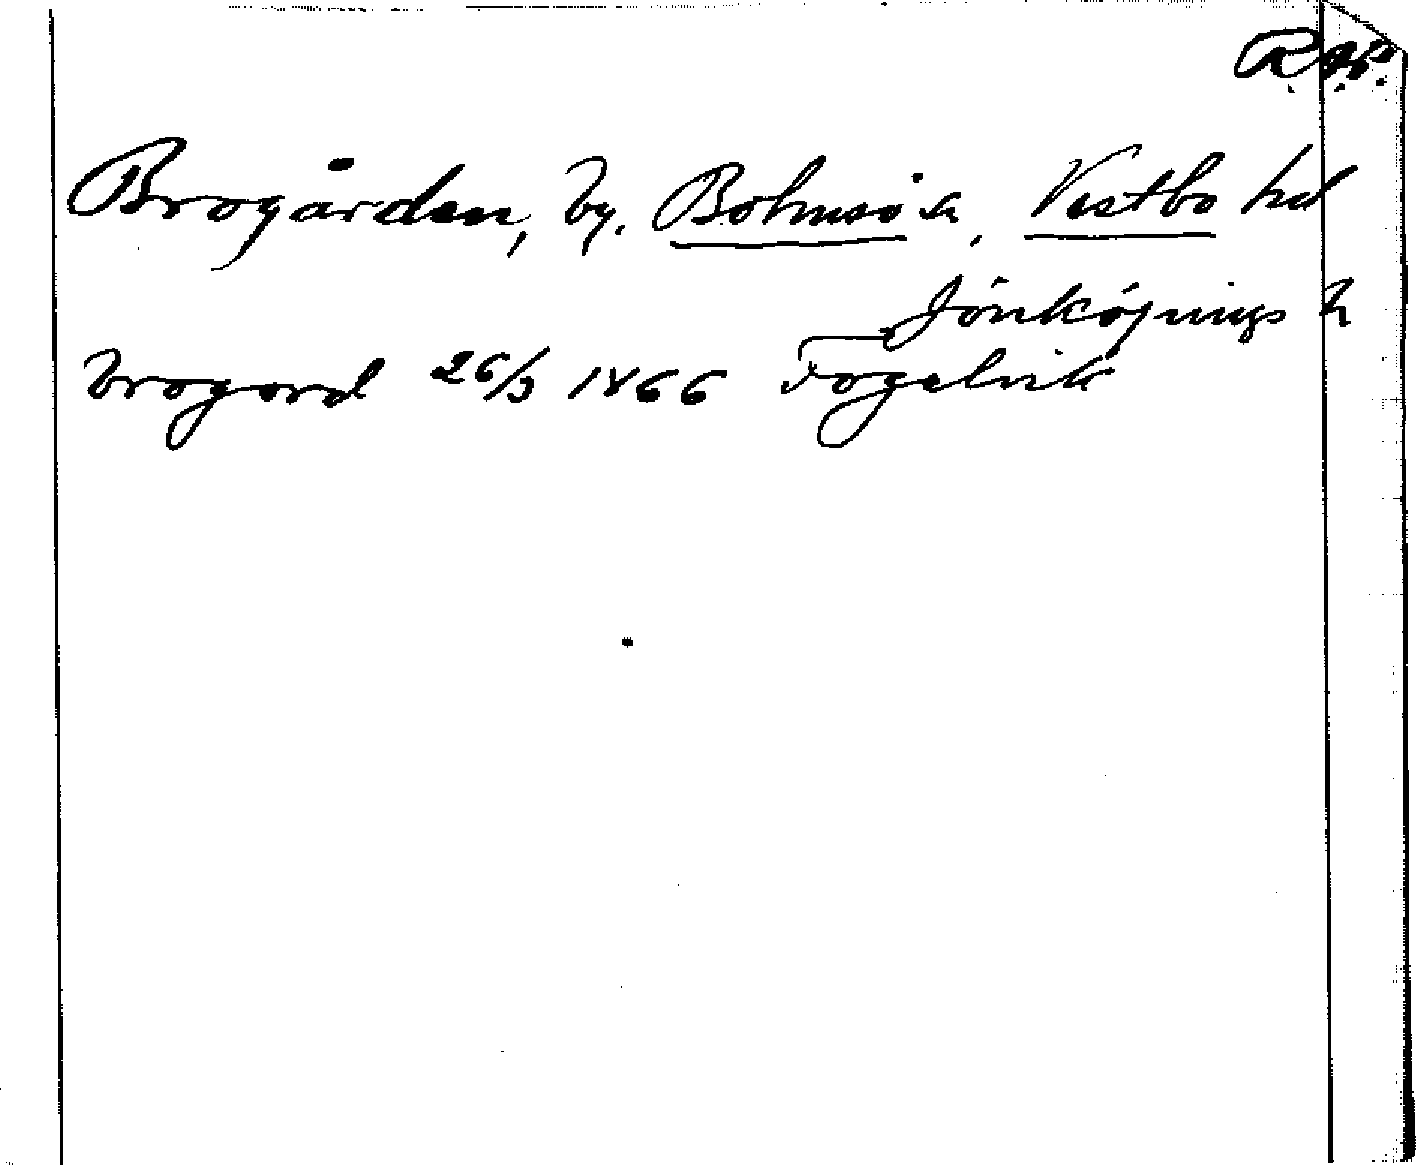 Brogården, by. Bolmsö sn, Vestbo hd
Jönköpings l
brogard 26/3 1866 Fogelvik